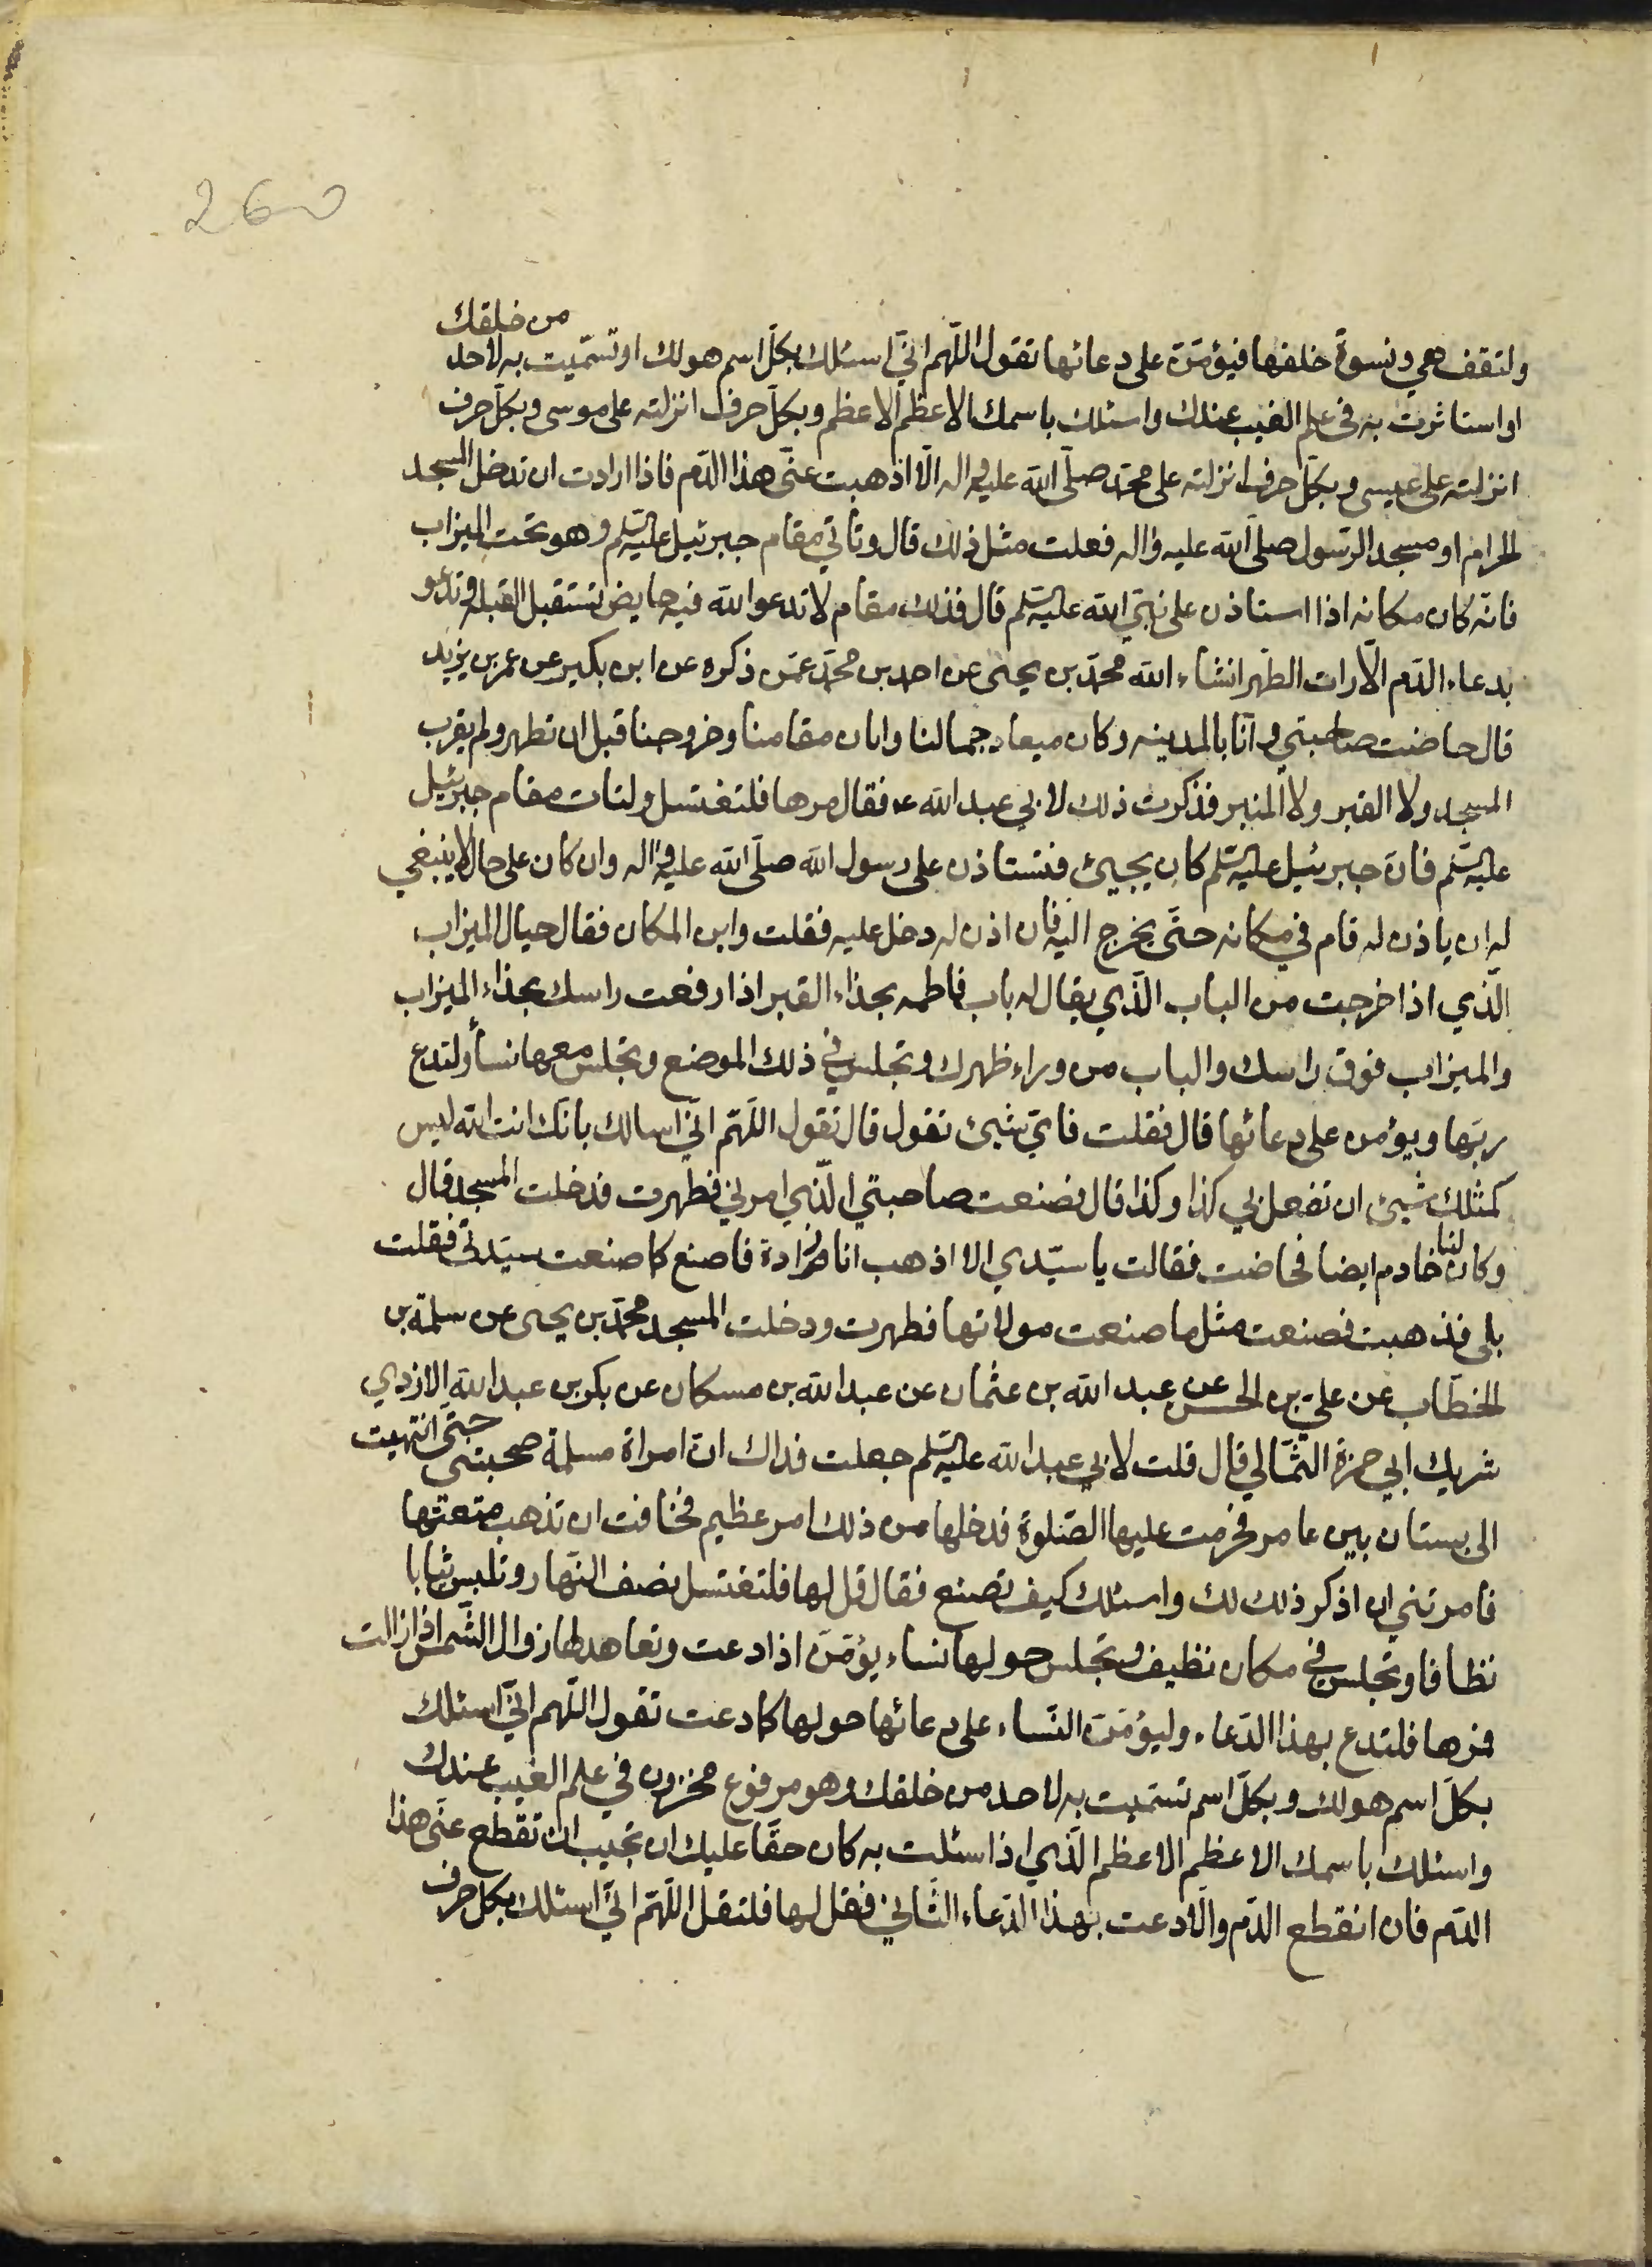 260
ولتقف هي ونسوة خلفها فيؤمّنّ على دعائها تقول اللّهم انّي اسئلك بكلّ اسم هو لك او تسمّيت به لاحد من خلقك
او استاثرت به في علم الغيب عندك واسئلك باسمك الاعظم الاعظم وبكلّ حرف انزلته على موسى وبكلّ حرف
انزلته على عيسى وبكلّ حرف انزلته على محمّد صلّى الله عليه واله الّا اذهبت عنّي هذا الدّم فاذا ارادت ان تدخل المسجد
الحرام او مسجد الرّسول صلّى الله عليه واله فعلت مثل ذلك قال وتاتي مقام جبرئيل عليه السّلم وهو تحت الميزاب
فانّه كان مكانه اذا استاذن على نبيّ الله عليه السّلم قال فذلك مقام لا تدعو الله فيه حايض تستقبل القبله وتدعو
بدعاء الدّم الّا رات الطّهر انشاء الله محمّد بن يحيى عن احمد بن محمّد عمّن ذكره عن ابن بكير عن عمر بن يزيد
قال حاضت صاحبتي وانا بالمدينه وكان ميعاد جمالنا وابان مقامنا وخروجنا قبل ان تطهر ولم يقرب
المسجد ولا القبر ولا المنبر فذكرت ذلك لابي عبد الله ع فقال مرها فلتغتسل ولتات مقام جبرئيل
عليه السّلم فانّ جبرئيل عليه السّلم كان يجيئ فتستاذن على رسول الله صلّى الله عليه واله وان كان على حال لا ينبغي
له ان ياذن له قام في مكانه حتّى يخرج اليه فان اذن له دخل عليه فقلت واين المكان فقال حيال الميزاب
الّذي اذا خرجت من الباب الّذي يقال له باب فاطمه بحذاء القبر اذا رفعت راسك بحذاء الميزاب
والميزاب فوق راسك والباب من وراء ظهرك وتجلس في ذلك الموضع وتجلس معها نساء ولتدع
ربّها ويؤمن على دعائها قال فقلت فايّ شيئ تقول قال تقول اللّهمّ انّي اسالك بانّك انت الله ليس
كمثلك شيئ ان تفعل بي كذا وكذا قال فصنعت صاحبتي الّذي امرني فطهرت فدخلت المسجد قال
وكان لنا خادم ايضا فحاضت فقالت يا سيّدي الا اذهب انا زادة فاصنع كما صنعت سيّدتي فقلت
بلى فذهبت فصنعت مثل ما صنعت مولاتها فطهرت ودخلت المسجد محمّد بن يحيى عن سلمة بن
الخطّاب عن عليّ بن الحسن عن عبد الله بن عثمان عن عبد الله بن مسكان عن بكر بن عبد الله الازدي
شريك ابي حمزة الثمّالي قال قلت لابي عبد الله عليه السّلم جعلت فداك انّ امراة مسلمة صحبتني حتّى انتهيت
الى بستان بين عامر فحرمت عليها الصّلوة فدخلها من ذلك امر عظيم فخافت ان تذهب متعتها
فامرتني ان اذكر ذلك لك واسئلك كيف تصنع فقال قل لها فلتغتسل نصف النّهار وتلبس ثيابا
نظافا وتجلس في مكان نظيف وتجلس حولها نساء يؤمّنّ اذا دعت وتعاهد لها زوال الشّمس اذا زالت
فمرها فلتدع بهذا الدّعاء وليؤمّنّ النّساء على دعائها حولها كما دعت تقول اللّهم انّي اسئلك
بكلّ اسم هو لك وبكلّ اسم تسمّيت به لاحد من خلقك وهو مرفوع مخزون في علم الغيب عندك
واسئلك باسمك الاعظم الاعظم الّذي اذا سئلت به كان حقّا عليك ان تجيب ان تقطع عنّي هذا
الدّم فان انقطع الدّم والّا دعت بهذا الدّعاء الثّاني فقل لها فلتقل اللّهمّ انّي اسئلك بكل حرف